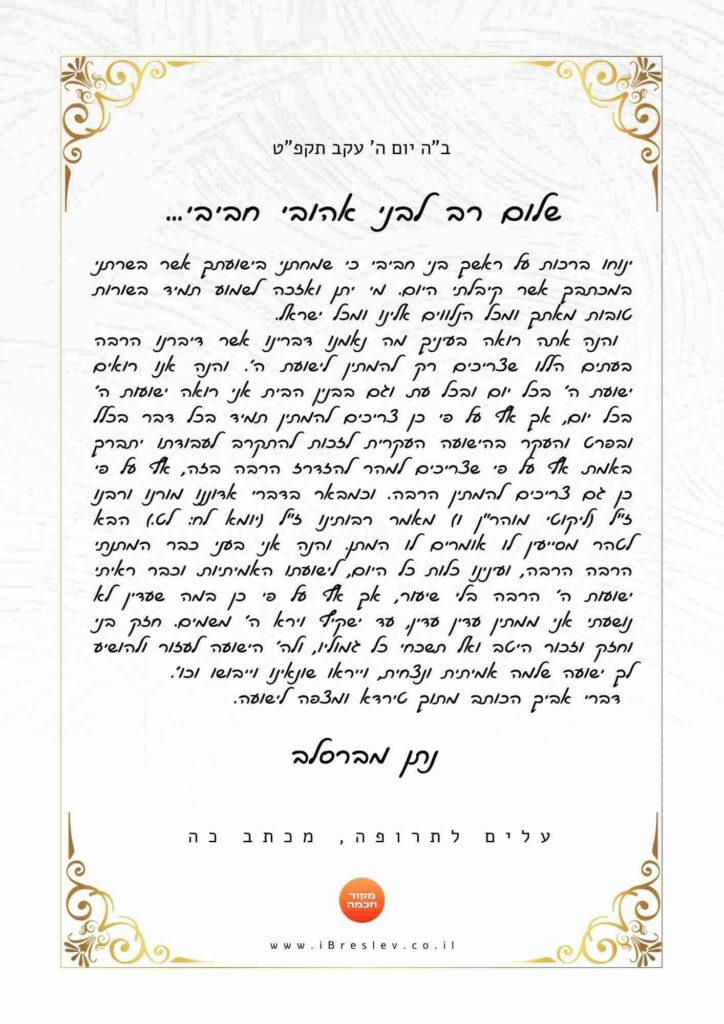 ב"ה יום ה' עקב תקפ"ט
שלום רב לבני אהובי חביבי...
ינוחו ברכות על ראשך בני חביבי כי שמחתני בישועתך אשר בשרתני
במכתבך אשר קיבלתי היום. מי יתן ואזכה לשמוע תמיד בשורות
טובות מאתך ומכל הנלווים אלינו ומכל ישראל.
והנה אתה רואה בעיניך מה נאמנו דברינו אשר דיברנו הרבה
בעתים הללו שצריכים רק להמתין לישועת ה'. והנה אנו רואים
ישועת ה' בכל יום ובכל עת וגם בבנין הבית אני רואה ישועות ה'
בכל יום, אך אף על פי כן צריכים להמתין תמיד בכל דבר בכלל
ובפרט והעקר בהישועה העקרית לזכות להתקרב לעבודתו יתברך
באמת אף על פי שצריכים למהר להזדרז הרבה בזה, אף על פי
כן גם צריכים להמתין הרבה. וכמבאר בדברי אדוננו מורנו ורבנו
ז"ל (ליקוטי מוהר"ן ו) מאמר רבותינו ז"ל (יומא לח: לט.) הבא
לטהר מסייעין לו אומרים לו המתן. והנה אני בעני כבר המתנתי
הרבה הרבה, ועינינו כלות כל היום, לישועתו האמיתיות וכבר ראיתי
ישועות ה' הרבה בלי שיעור, אך אף על פי כן במה שעדין לא
נושעתי אני ממתין עדין עדין, עד ישקיף וירא ה' משמים. חזק בני
וחזק וזכור היטב ואל תשכחי כל גמוליו, ולה' הישועה לעזור ולהושיע
לך ישועה שלמה אמיתית ונצחית, וייראו שונאינו וייבושו וכו'.
דברי אביך הכותב מתוך טירדא ומצפה לישועה.
נתן מברסלב
עלים לתרופה, מכתב כה
מקור
חכמה
www.iBreslev.co.il